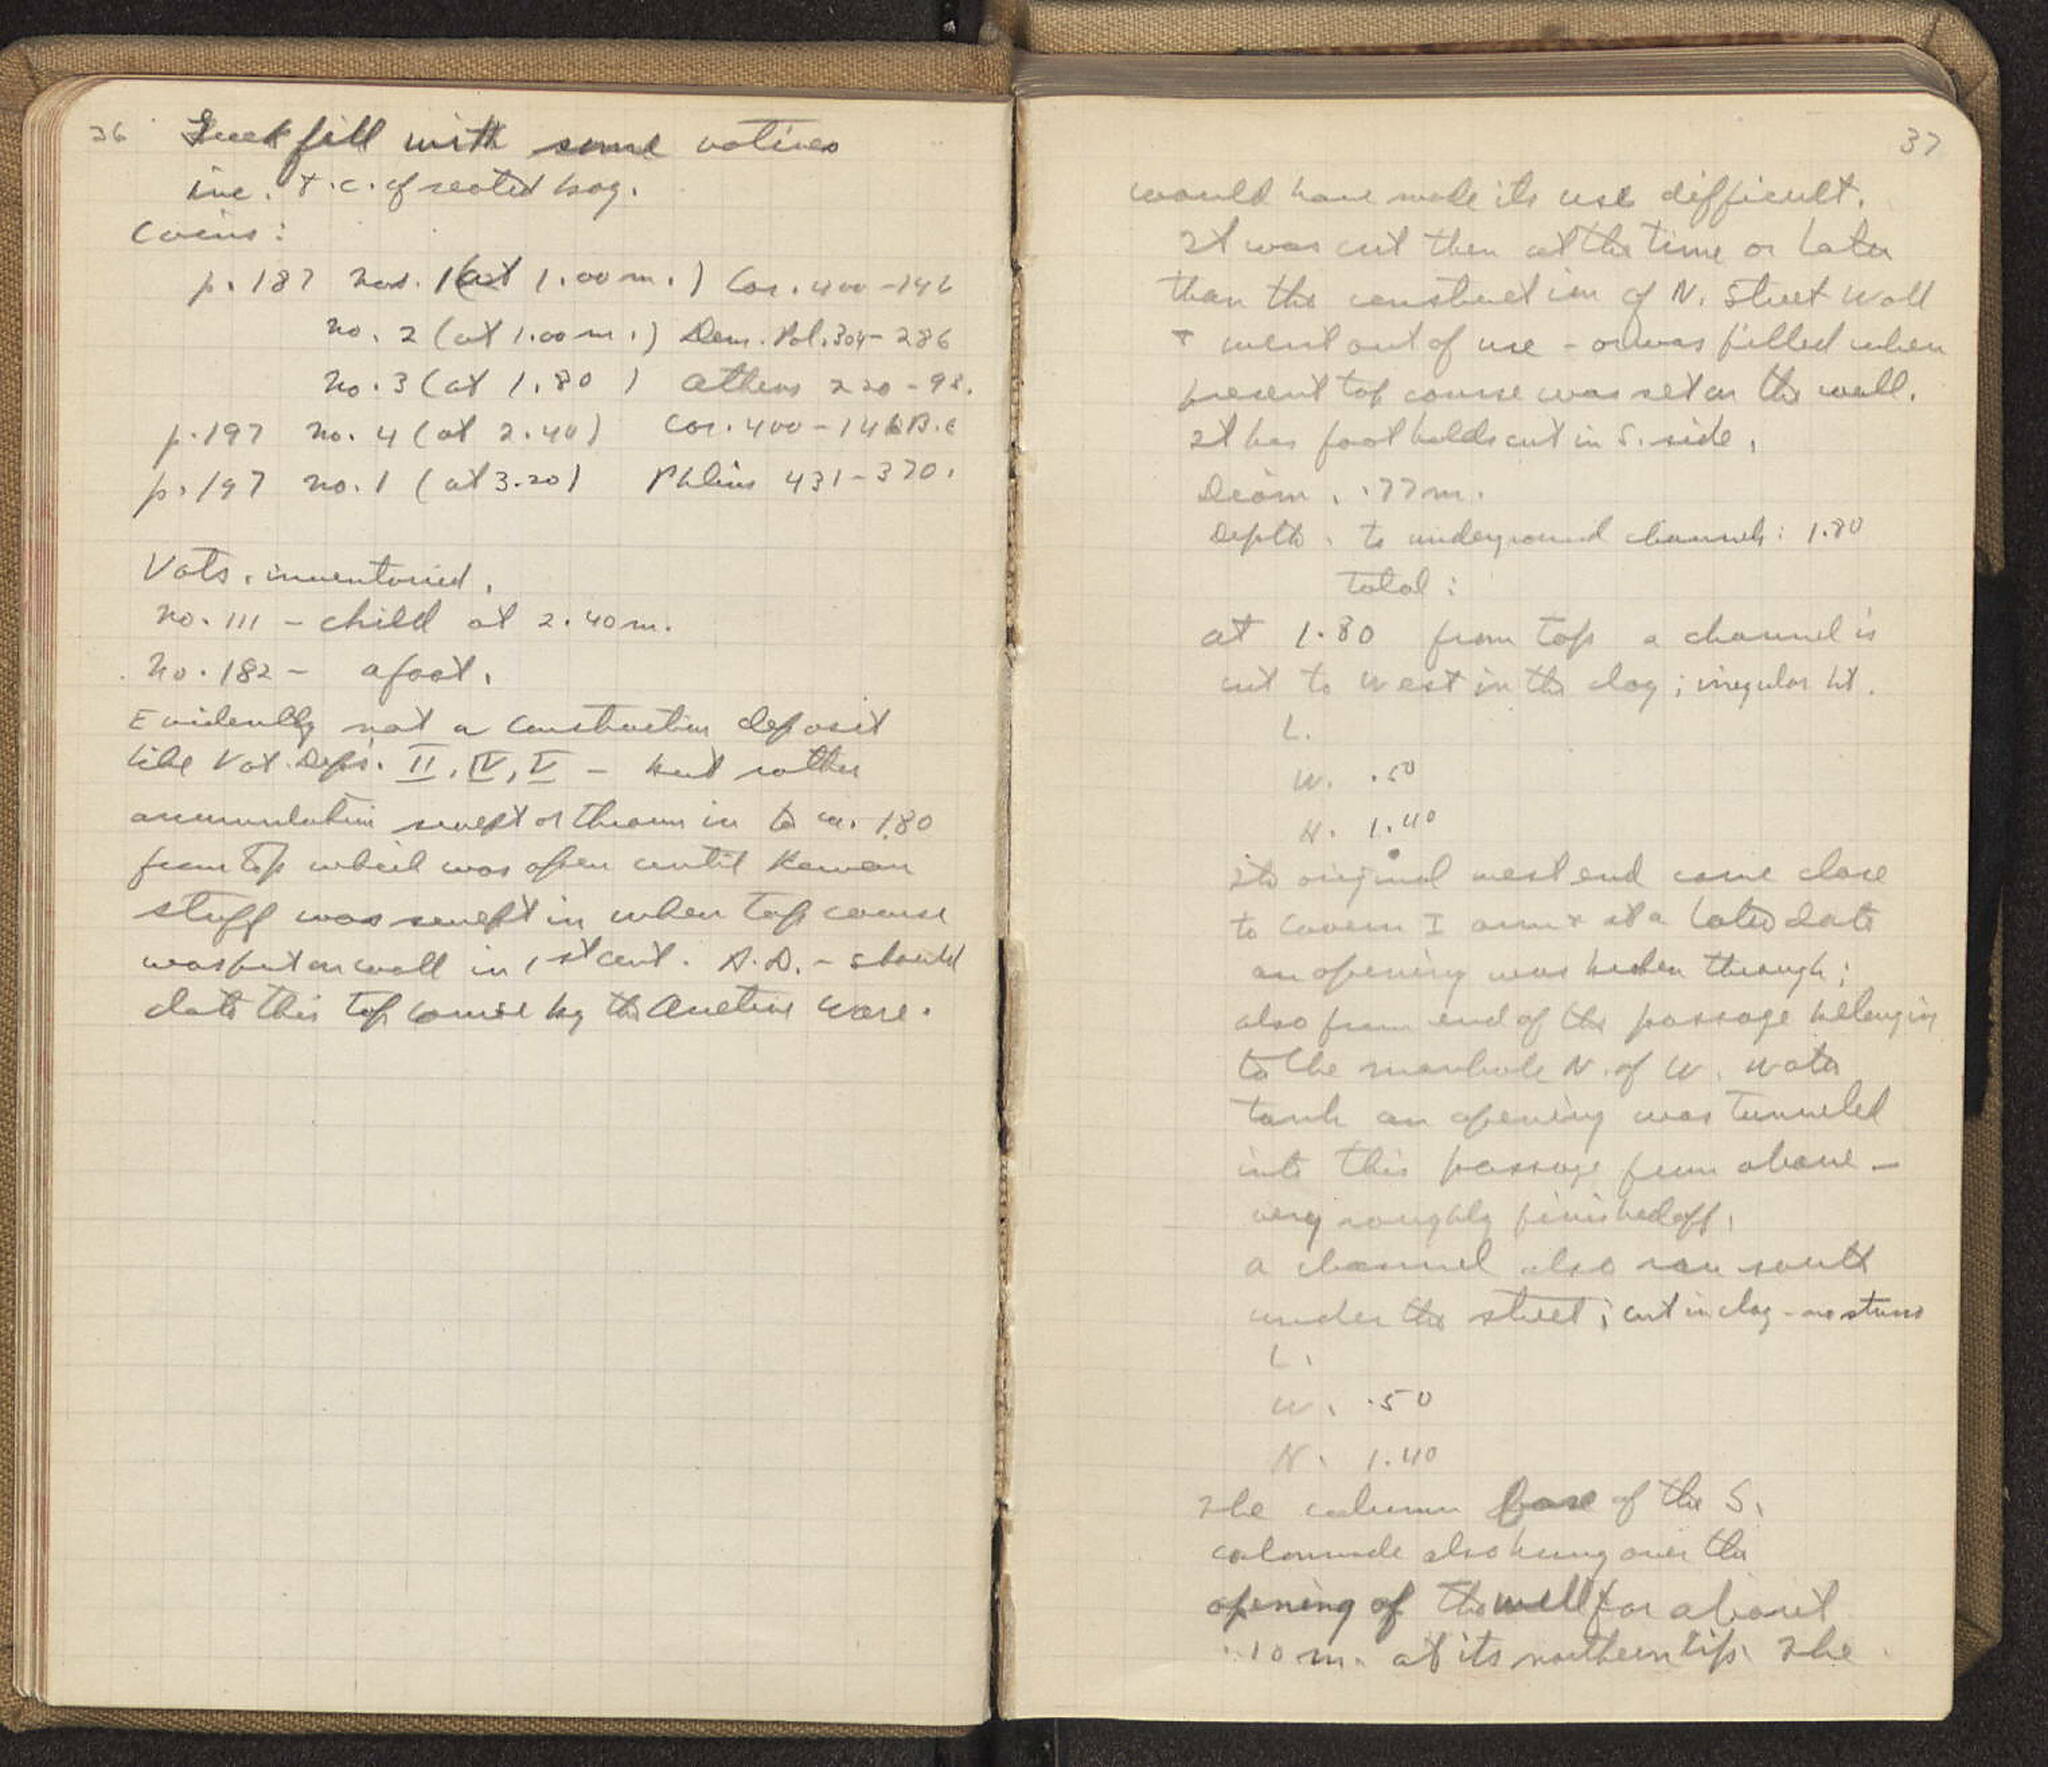 36
Greek fill with some votives
inc. t.c. of seated boy.
Coins:
p. 187 nos. 1 (at 1.00 m.) Cor. 400-146
no. 2 (at 1.00 m.) Dem. Pol. 304-286
no. 3 (at 1.80) Athens 220-98.
p. 197 no. 4 (at 2.40) Cor. 400-146 B.C
p. 197 no. 1 (at 3.20) Phlius 431-370.
Vots. inventoried.
no. 111 - child at 2.40 m.
no. 182 - a foot.
Evidently not a construction deposit
like Vot. Deps. II, IV, V - but rather
accumulation swept or thrown in to ca. 1.80
from top which was open until Roman
stuff was swept in when top course
was put on wall in 1st cent. A.D. - should
date this top course by the Arretine ware.
37
would have made its use difficult.
It was cut then at the time or later
than the construction of N. Street Wall
+ went out of use - or was filled when
present top course was set on the wall.
It has foot holds cut in S. side.
Diam. .77 m.
Depth. to underground channels: 1.80
total:
at 1.80 from top a channel is
cut to west in the clay; irregular ht.
L.
W. .50
H. 1.40
its original west end came close
to Cavern I arm + at a later date
an opening was broken through;
also from end of the passage belonging
to the manhole N. of W. water
tank an opening was tunneled
into this passage from above -
very roughly finished off.
a channel also ran south
under the street; cut in clay - no stucco
L.
W. .50
H. 1.40
The column base of the S.
colonnade also hung over the
opening of the well for about
.10 m. at its northern lip. The